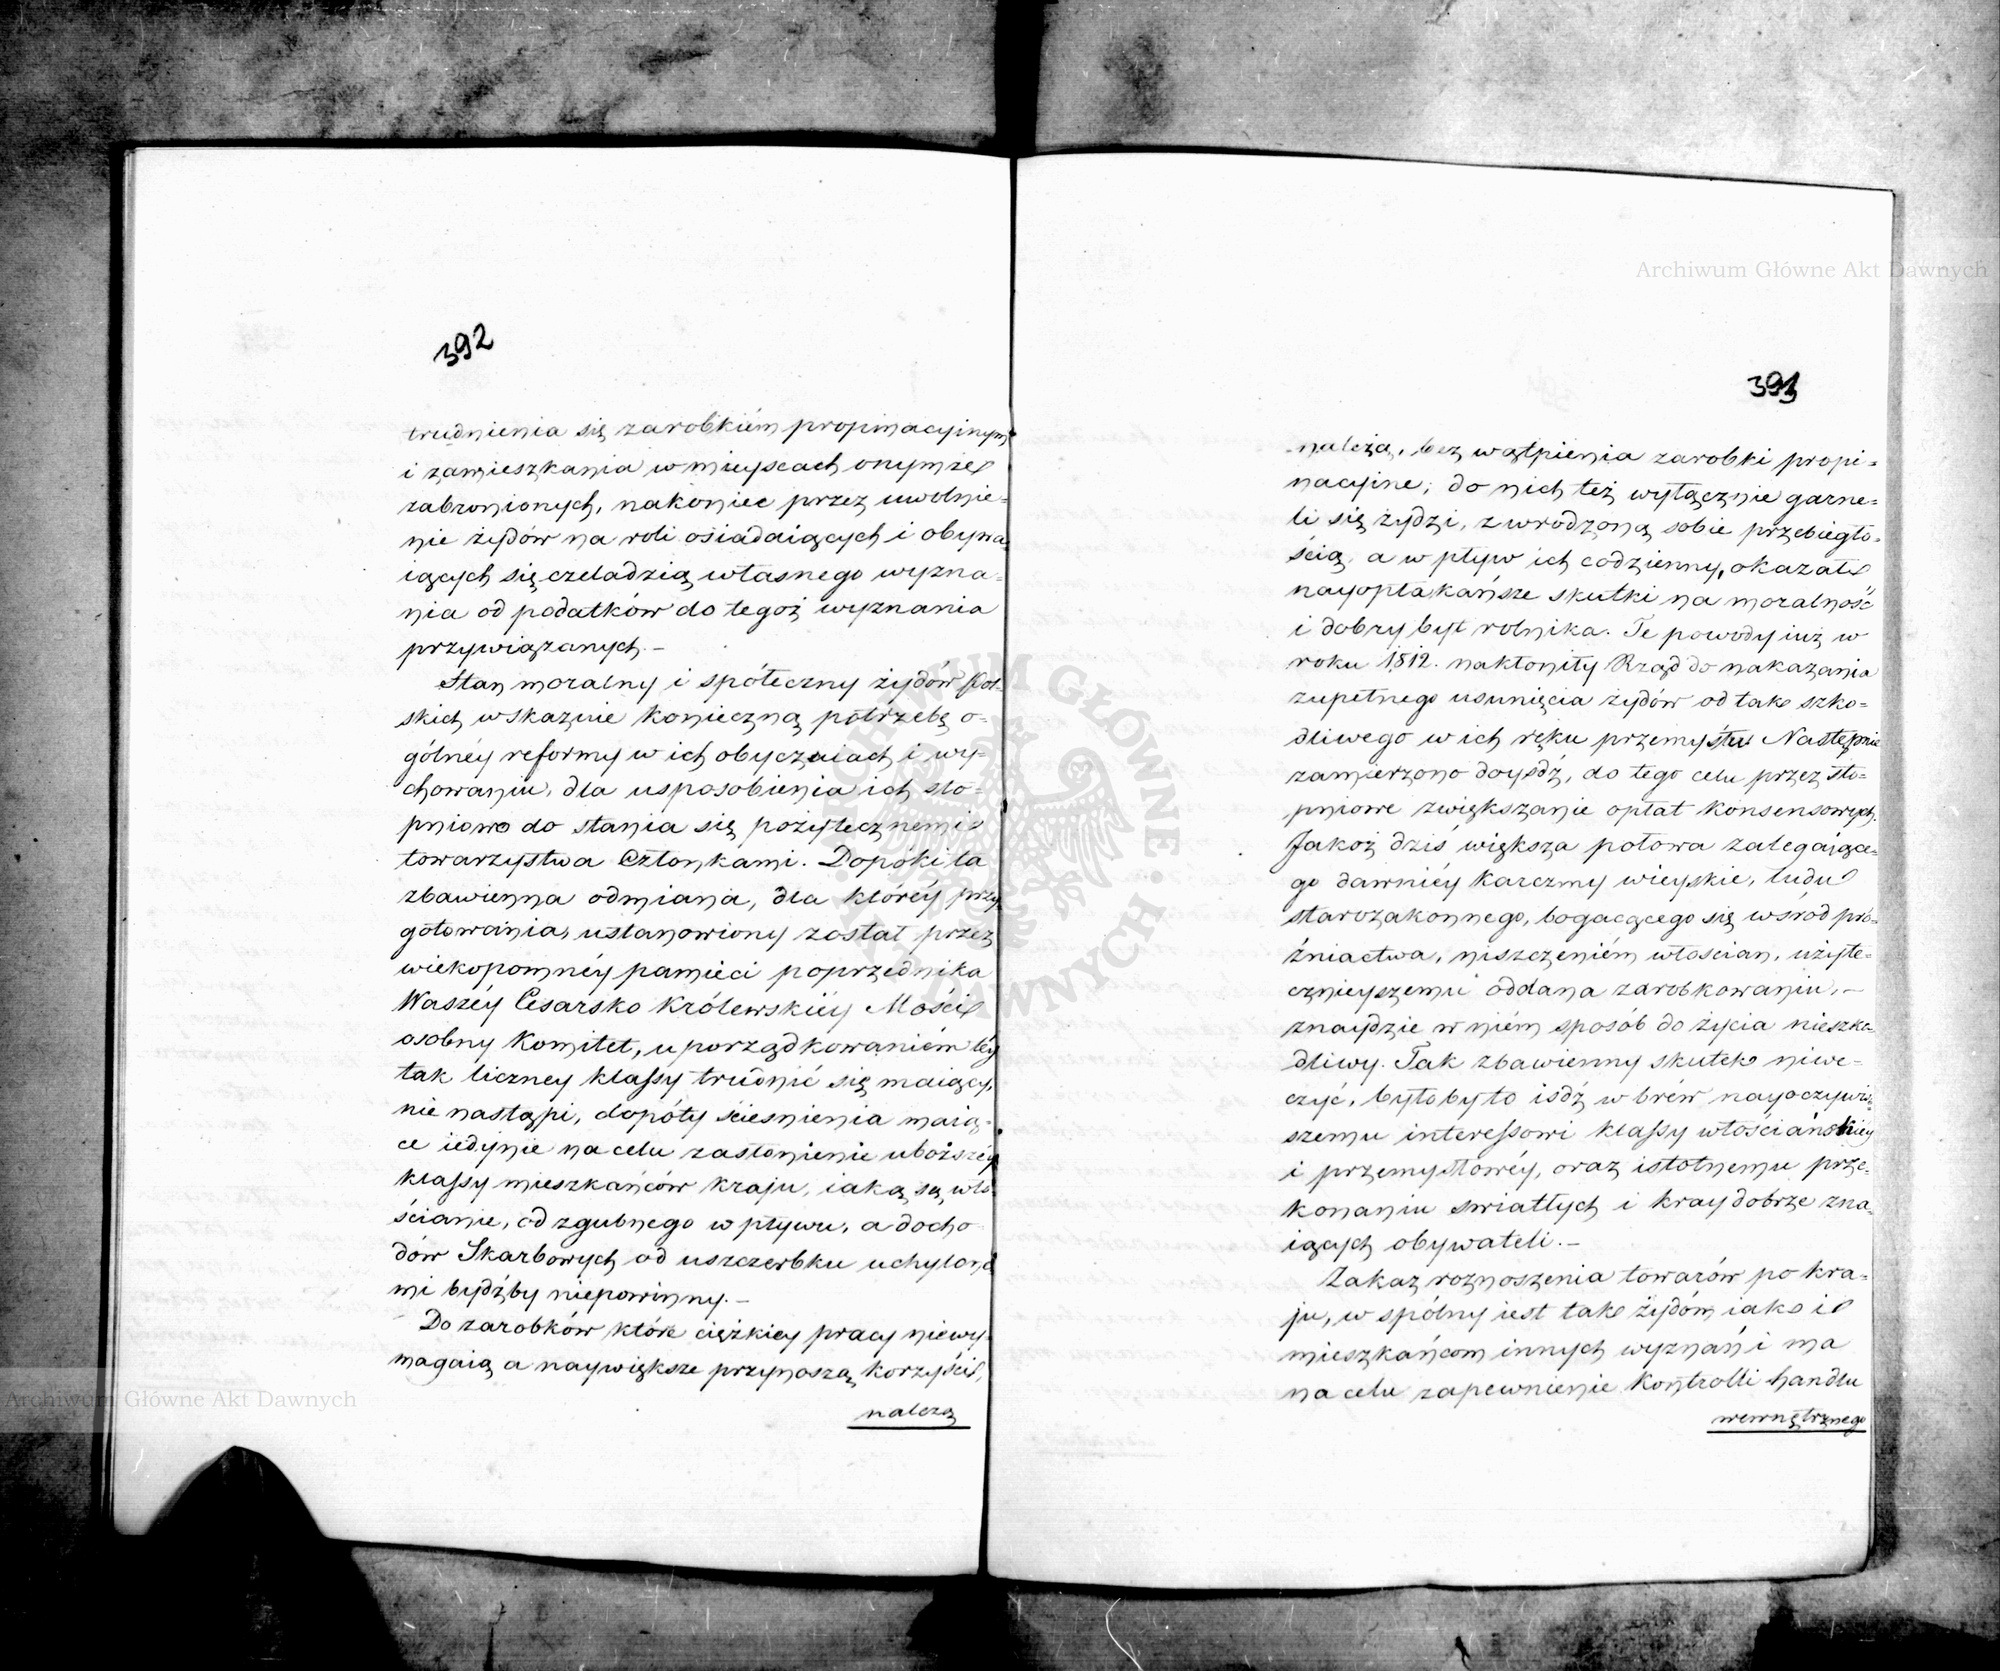 392
trudnienia się zarobkiém propinacyinym
i zamieszkania w mieyscach onymże
zabronionych, nakoniec przez uwolnie-
nie żydów na roli osiadaiących i obywa-
iących się czeladzią własnego wyzna-
nia od podatków do tegoż wyznania
przywiązanych. –
Stan moralny i spółeczny żydów Pol-
skich wskazuie konieczną potrzebę o-
gólnéy reformy w ich obyczaiach i wy-
chowaniu, dla usposobienia ich sto-
pniowo do stania się pożytecznemi
towarzystwa Członkami. Dopóki ta
zbawienna odmiana, dla któréy przy-
gotowania, ustanowiony został przez
wiekopomnéy pamięci poprzednika
Waszéy Cesarsko Królewskiéy Mości
osobny Komitet, uporządkowaniém téy
tak liczney klassy trudnić się maiący,
nie nastąpi, dopóty ścieśnienia maią-
ce iedynie na celu zasłonienie uboższéy
klassy mieszkańców kraju, iaką są wło-
ścianie, od zgubnego wpływu, a docho-
dów Skarbowych od uszczerbku uchylone-
mi bydźby niepowinny. –
Do zarobków które ciężkiey pracy niewy-
magaią a naywiększe przynoszą korzyści,
należą
393
należą, bez wątpienia zarobki propi-
nacyine; do nich też wyłącznie garne-
li się żydzi, z wrodzoną sobie przebiegło-
ścią, a wpływ ich codzienny, okazał
nayopłakańsze skutki na moralność
i dobry byt rolnika. Te powody iuż w
roku 1812. nakłoniły Rząd do nakazania
zupełnego usunięcia żydów od tak szko-
dliwego w ich ręku przemysłu. Następnie
zamierzono doyśdź, do tego celu przez sto-
pniowe zwiększanie opłat konsensowych.
Jakoż dziś większa połowa zalegaiące-
go dawniéy karczmy wieyskie, ludu
starozakonnego, bogacącego się wśród pró-
żniactwa, niszczeniém włościan, użyte-
cznieyszemu oddana zarobkowaniu, –
znaydzie w niém sposób do życia nieszko-
dliwy. Tak zbawienny skutek niwe-
czyć, byłoby to iśdź wbrew nayoczywist-
szemu interessowi klassy włościańskiey
i przemysłowéy, oraz istotnemu prze-
konaniu swiatłych i kray dobrze zna-
iących obywateli. –
Zakaz roznoszenia towarów po kra-
ju, wspólny iest tak żydóm iako i
mieszkańcom innych wyznań i ma
na celu zapewnienie kontrolli handlu
wewnętrznego
Archiwum Główne Akt Dawnych
Archiwum Główne Akt Dawnych
ARCHIWUM GŁÓWNE AKT DAWNYCH